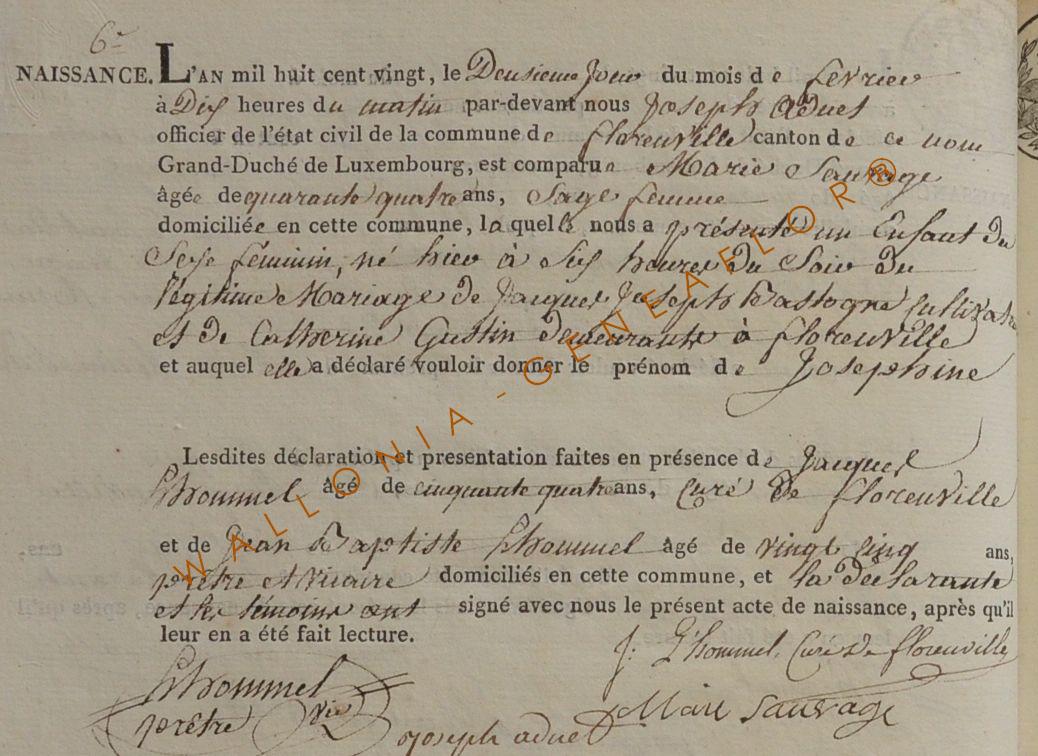 6e
NAISSANCE. L'AN mil huit cent vingt, le Deusieme jour du mois de fevrier
à Dix heures du matin par-devant nous Joseph Aduet
officier de l'état civil de la commune de florenville canton de ce nom
Grand-Duché de Luxembourg, est comparue Marie Sauvage
âgée de quarante quatre ans, Sage femme
domiciliée en cette commune, laquelle nous a présenté un Enfant du
Sexe féminin, né hier à Six heures du Soir du
légitime Mariage de Jacques Joseph Bastogne
et de Catherine Gustin demeurante à florenville
et auquel elle a déclaré vouloir donner le prénom de Josephine
Lesdites déclaration et presentation faites en présence de Jacques
Lhommel âgé de cinquante quatre ans, Curé de florenville
et de Jean Baptiste Lhommel âgé de vingt cinq ans,
prêtre et vicaire domiciliés en cette commune, et la declarante
et les témoins ont signé avec nous le présent acte de naissance, après qu'il
leur en a été fait lecture.
J. L'hommel Curé de florenville
Lhommel
prêtre vic
Marie Sauvage
Joseph aduet
WALLONIA-GENEAFLOR®